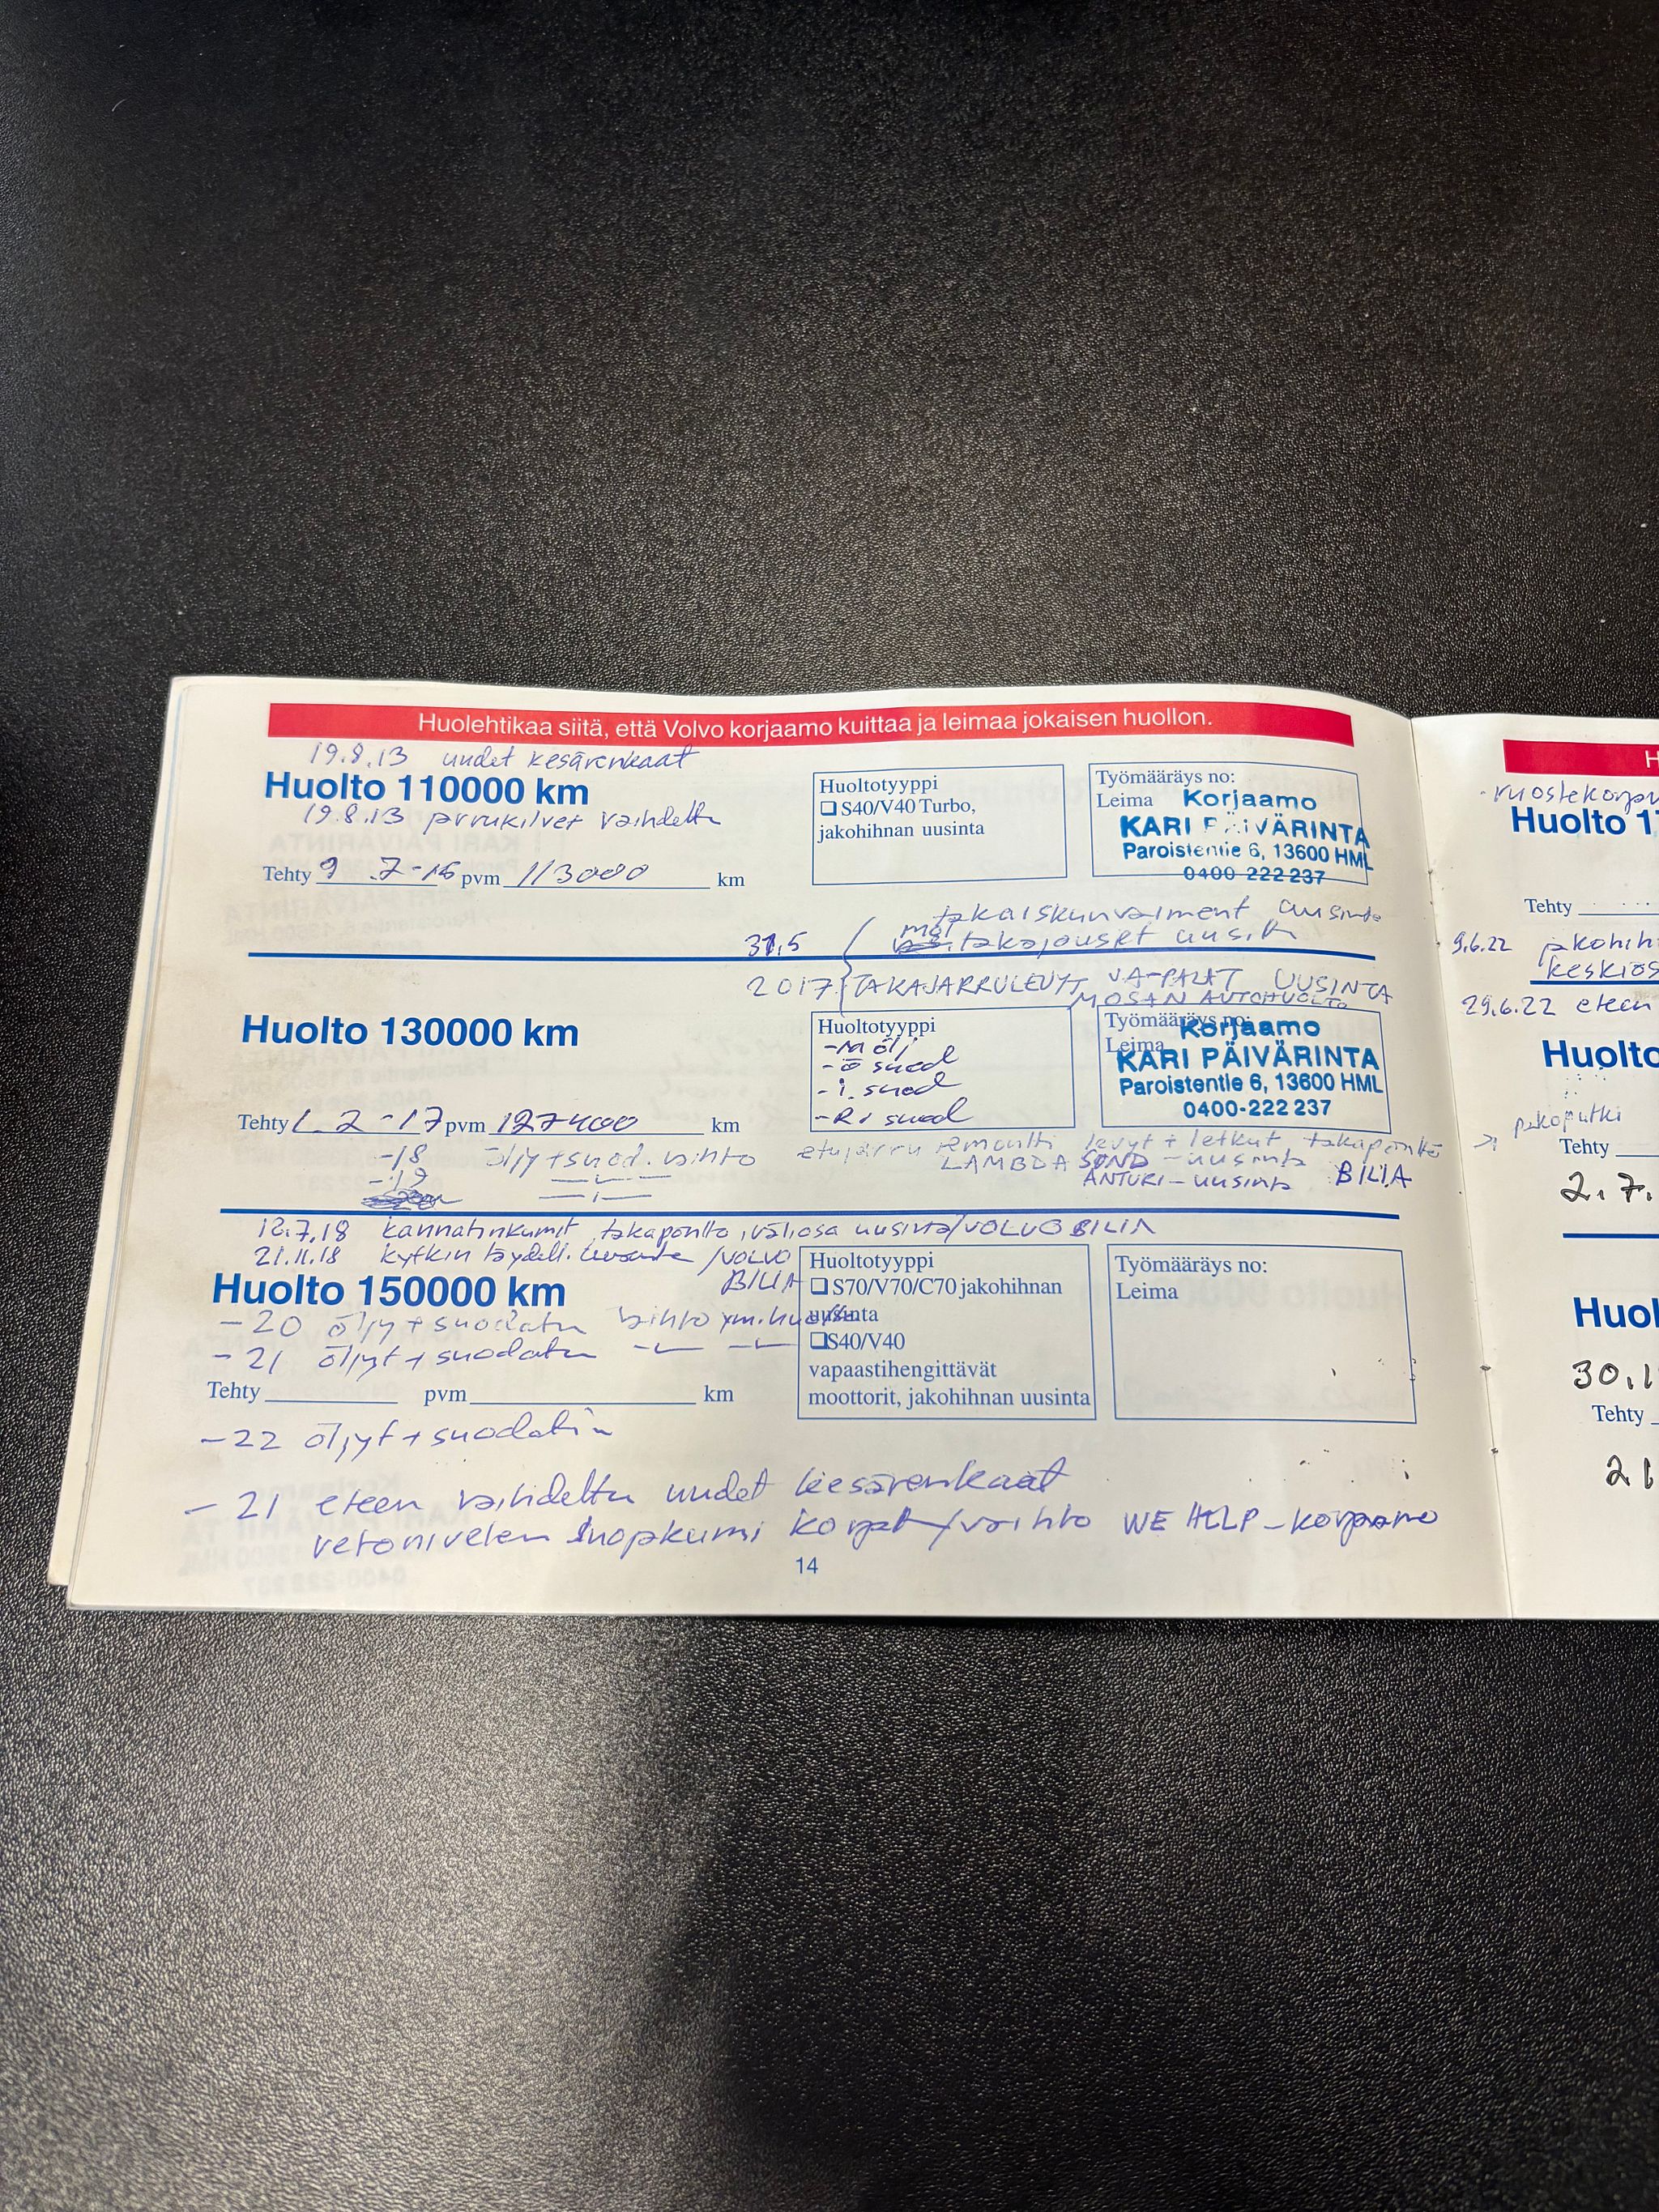 Huolehtikaa siitä, että Volvo korjaamo kuittaa ja leimaa jokaisen huollon.
19.8.13 uudet kesärenkaat
Huolto 110000 km
19.8.13 vaihdettu
Tehty 9 .7-15 pvm 113000 km
Huoltotyyppi
❏ S40/V40 Turbo,
jakohihnan uusinta
Työmääräys no:
Leima Korjaamo
KARI PÄIVÄRINTA
Paroistentie 6, 13600 HML
0400 222 237
takaiskunvaiment uusinta
takajouset uusit.
31,5
2017 TAKAJARRULEVYT JA-PALAT UUSINTA
MOSAN AUTOHUOLTO
Huolto 130000 km
Tehty 1.2-17 pvm 127400 km
Huoltotyyppi
-M ölj
-ö suod
-i. suod
-Ri suod
Työmääräys no:
Leima
Korjaamo
KARI PÄIVÄRINTA
Paroistentie 6, 13600 HML
0400-222 237
-18 öljy+suod. vaihto
-19
etujarru remontti levyt + letkut, takapönttö
LAMBDA SOND -uusinta
ANTURI-uusinta BILIA
12.7.18 kannatinkumit, takapöntto, väliosa uusinta/VOLVO BILIA
21.11.18 kytkin täydell. /VOLVO
BILIA
Huolto 150000 km
-20 öljy+suodatin vaihto ym.
-21 öljyt+suodatin
Tehty pvm km
Huoltotyyppi
❏ S70/V70/C70 jakohihnan
uusinta
❏S40/V40
vapaastihengittävät
moottorit, jakohihnan uusinta
Työmääräys no:
Leima
-22 öljyt+suodatin
-21 eteen vaihdettu uudet kesärenkaat
vetonivelen korjat/vaihto WE HELP-korjaamo
14
H
Huolto 1
Tehty
9.6.22
29.6.22 eteen
Huolto
pakoputki
Tehty
2.7.
Huol
30.1
Tehty
21